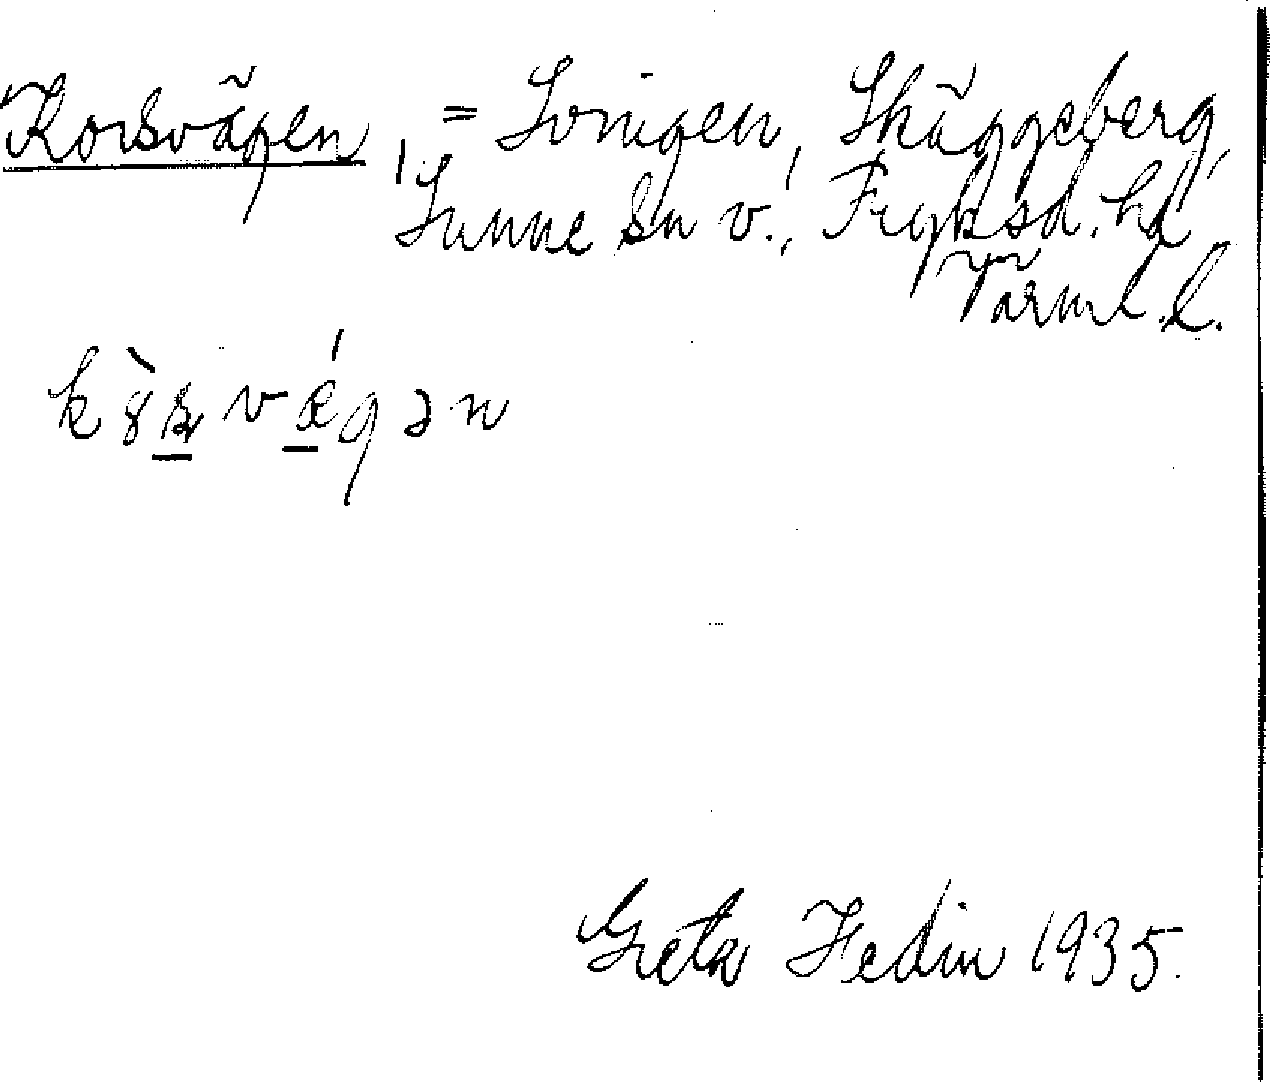 Korsvägen, = Svingen, Skäggeberg,
Sunne sn v., Fryksd. hd
Värml. l.
Greta Hedin 1935.